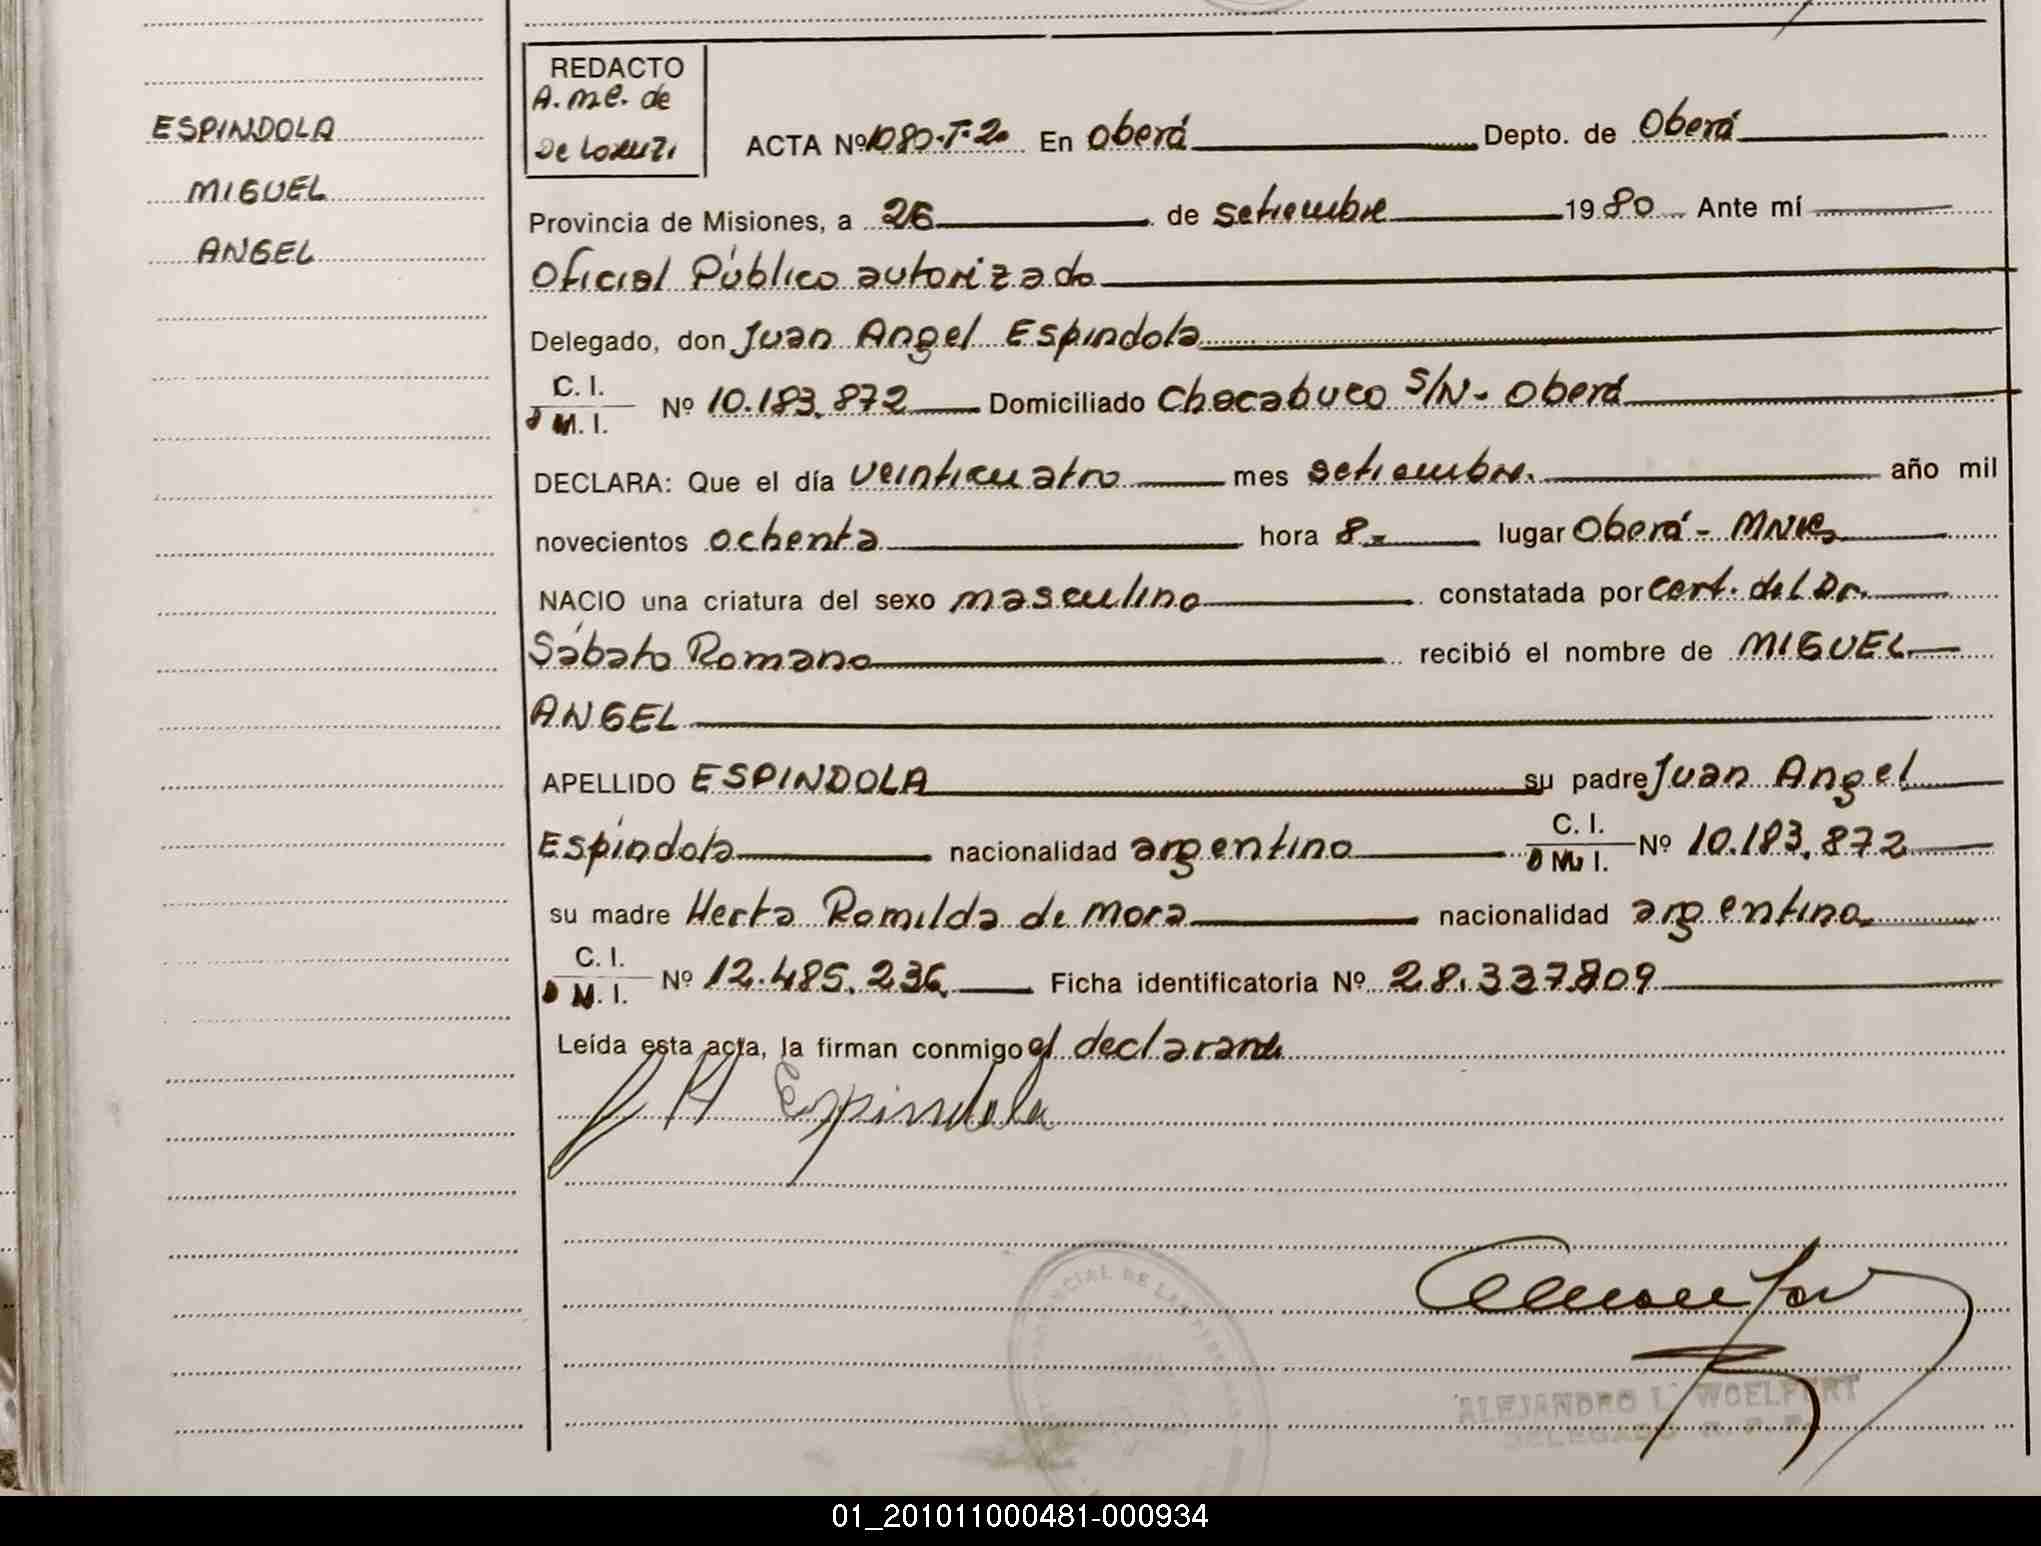 ESPINDOLA
MIGUEL
ANGEL
REDACTO
A. M. C. de
De Lorenzi
ACTA Nº 1080-T-2º En Oberá Depto. de Oberá
Provincia de Misiones, a 26 de setiembre 1980 Ante mí
Oficial Público autorizado
Delegado, don Juan Angel Espindola
C. I.
D M. I. Nº 10.183.872 Domiciliado Chacabuco S/N - Oberá
DECLARA: Que el día veinticuatro mes setiembre. año mil
novecientos ochenta hora 8 lugar Oberá - Mnes
NACIO una criatura del sexo masculino constatada por cert. del Dr.
Sábato Romano recibió el nombre de MIGUEL
ANGEL
APELLIDO ESPINDOLA su padre Juan Angel
Espíndola nacionalidad argentino C. I. D M. I. Nº 10.183.872
su madre Herta Romilda de Mora nacionalidad argentina
C. I.
D M. I. Nº 12.485.236 Ficha identificatoria Nº 28.337.809
Leída esta acta, la firman conmigo el declarante
J A Espindola
PROVINCIAL DE LAS PERSONAS
ALEJANDRO L. WOELFERT
DELEGADO R. P. P.
01_201011000481-000934